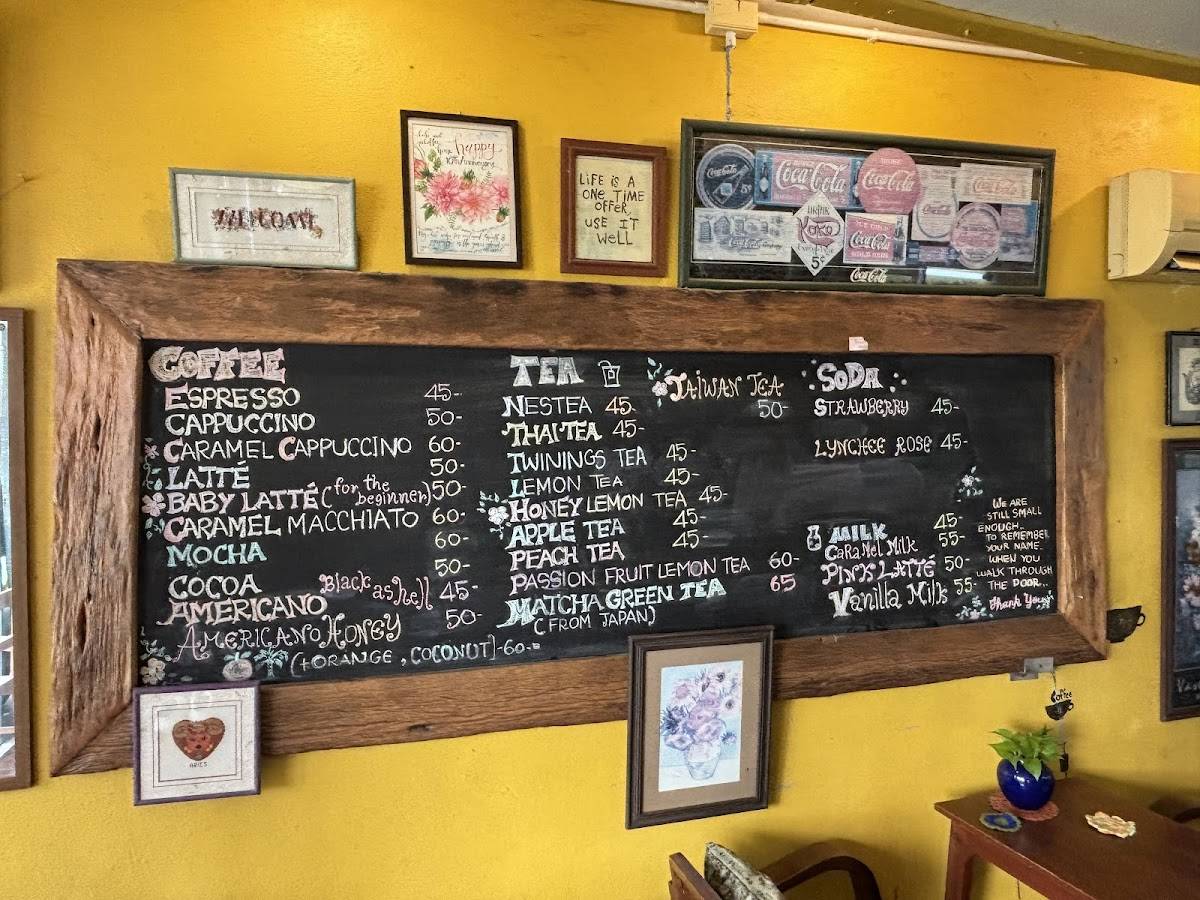 WELCOME
happy
10th Anniversary
LIFE IS A
ONE TIME
OFFER,
USE IT
WELL
Coca-Cola
Coca-Cola
Coca-Cola
DRINK
Koke
5¢
ICE COLD
Coca-Cola
Coca-Cola
COFFEE
ESPRESSO 45-
CAPPUCCINO 50-
CARAMEL CAPPUCCINO 60-
LATTÉ 50-
BABY LATTÉ (for the beginner) 50-
CARAMEL MACCHIATO 60-
MOCHA 60-
COCOA 50-
AMERICANO Black as hell 45-
AMERICANO HONEY 50-
(+ORANGE, COCONUT)-60-
TEA
NESTEA 45-
THAI TEA 45-
TWININGS TEA 45-
LEMON TEA 45-
HONEY LEMON TEA 45-
APPLE TEA 45-
PEACH TEA 45-
PASSION FRUIT LEMON TEA 60-
MATCHA GREEN TEA 65
(FROM JAPAN)
TAIWAN TEA
50-
SODA
STRAWBERRY 45-
LYNCHEE ROSE 45-
MILK 45-
CaRaMeL MiLK 55-
PINK LATTÉ 50-
Vanilla Milk 55-
WE ARE
STILL SMALL
ENOUGH..
TO REMEMBER
YOUR NAME
WHEN YOU
WALK THROUGH
THE DOOR...
Thank You
ARIES
Coffee